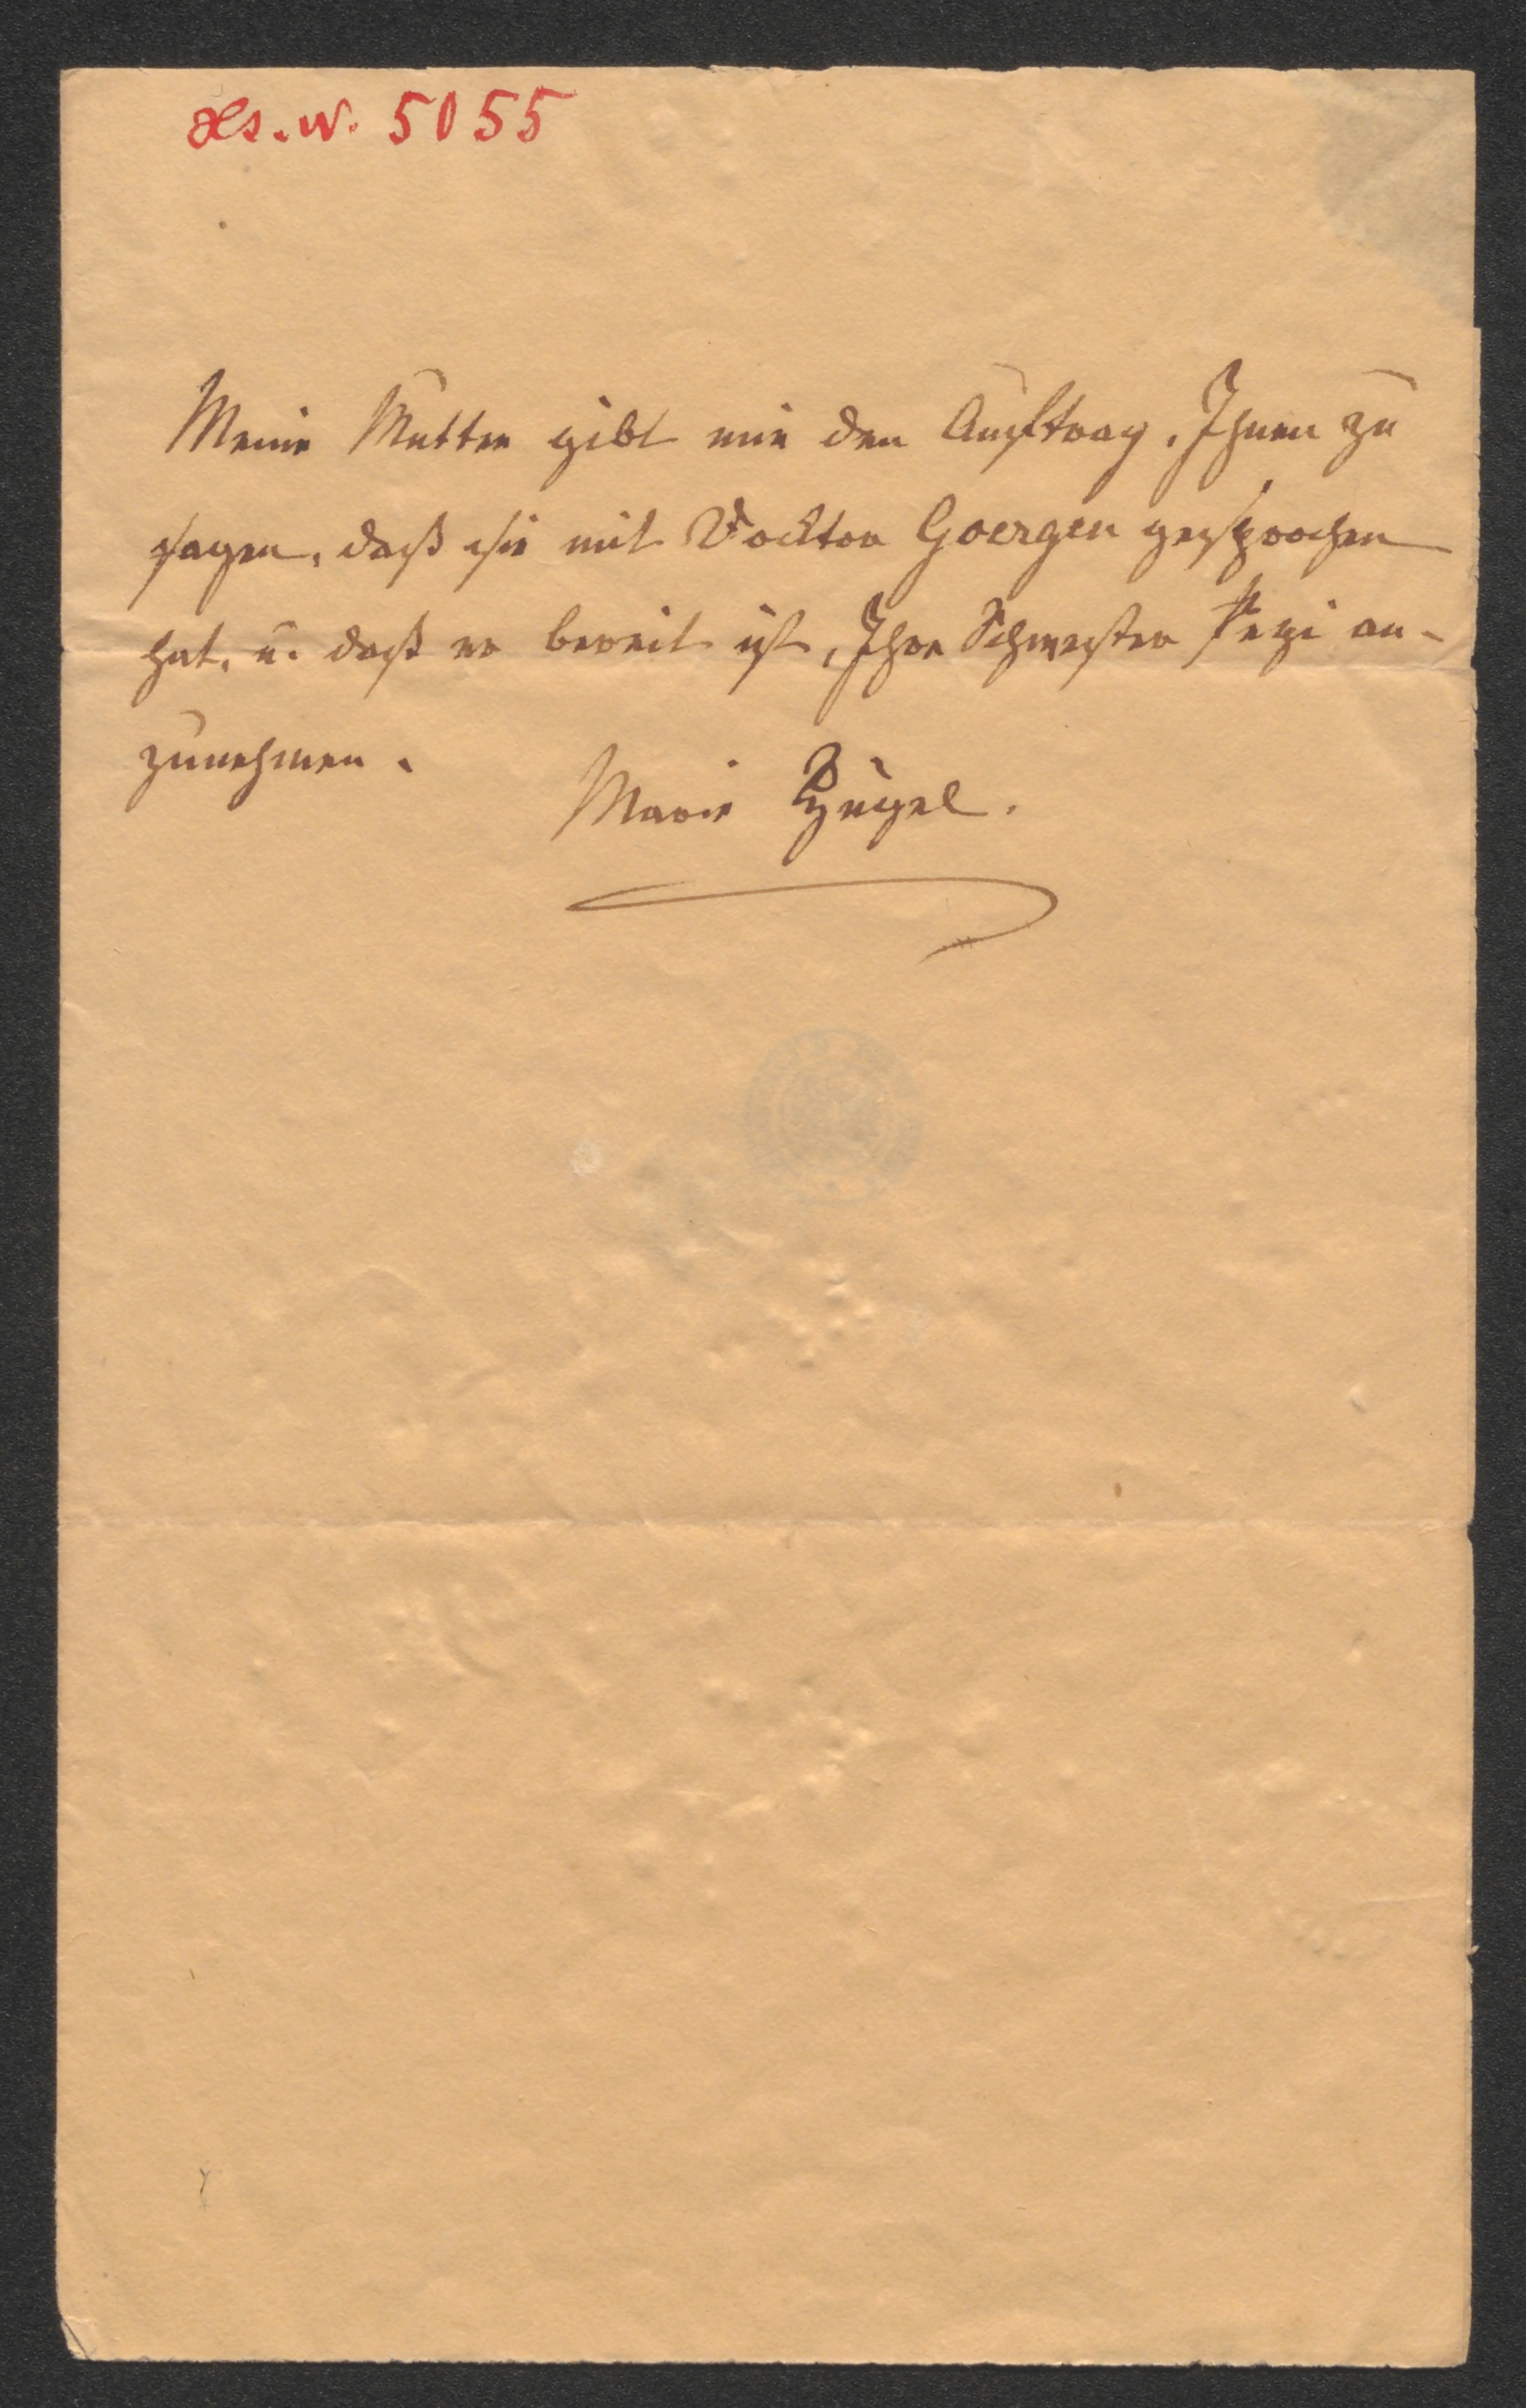 Hs. N. 5055
Meine Mutter gibt mir den Auftrag, Ihnen zu
sagen, daß sie mit Docktor Goergen gesprochen
hat, u. daß er bereit ist, Ihre Schwester an-
zunehmen.
Marie